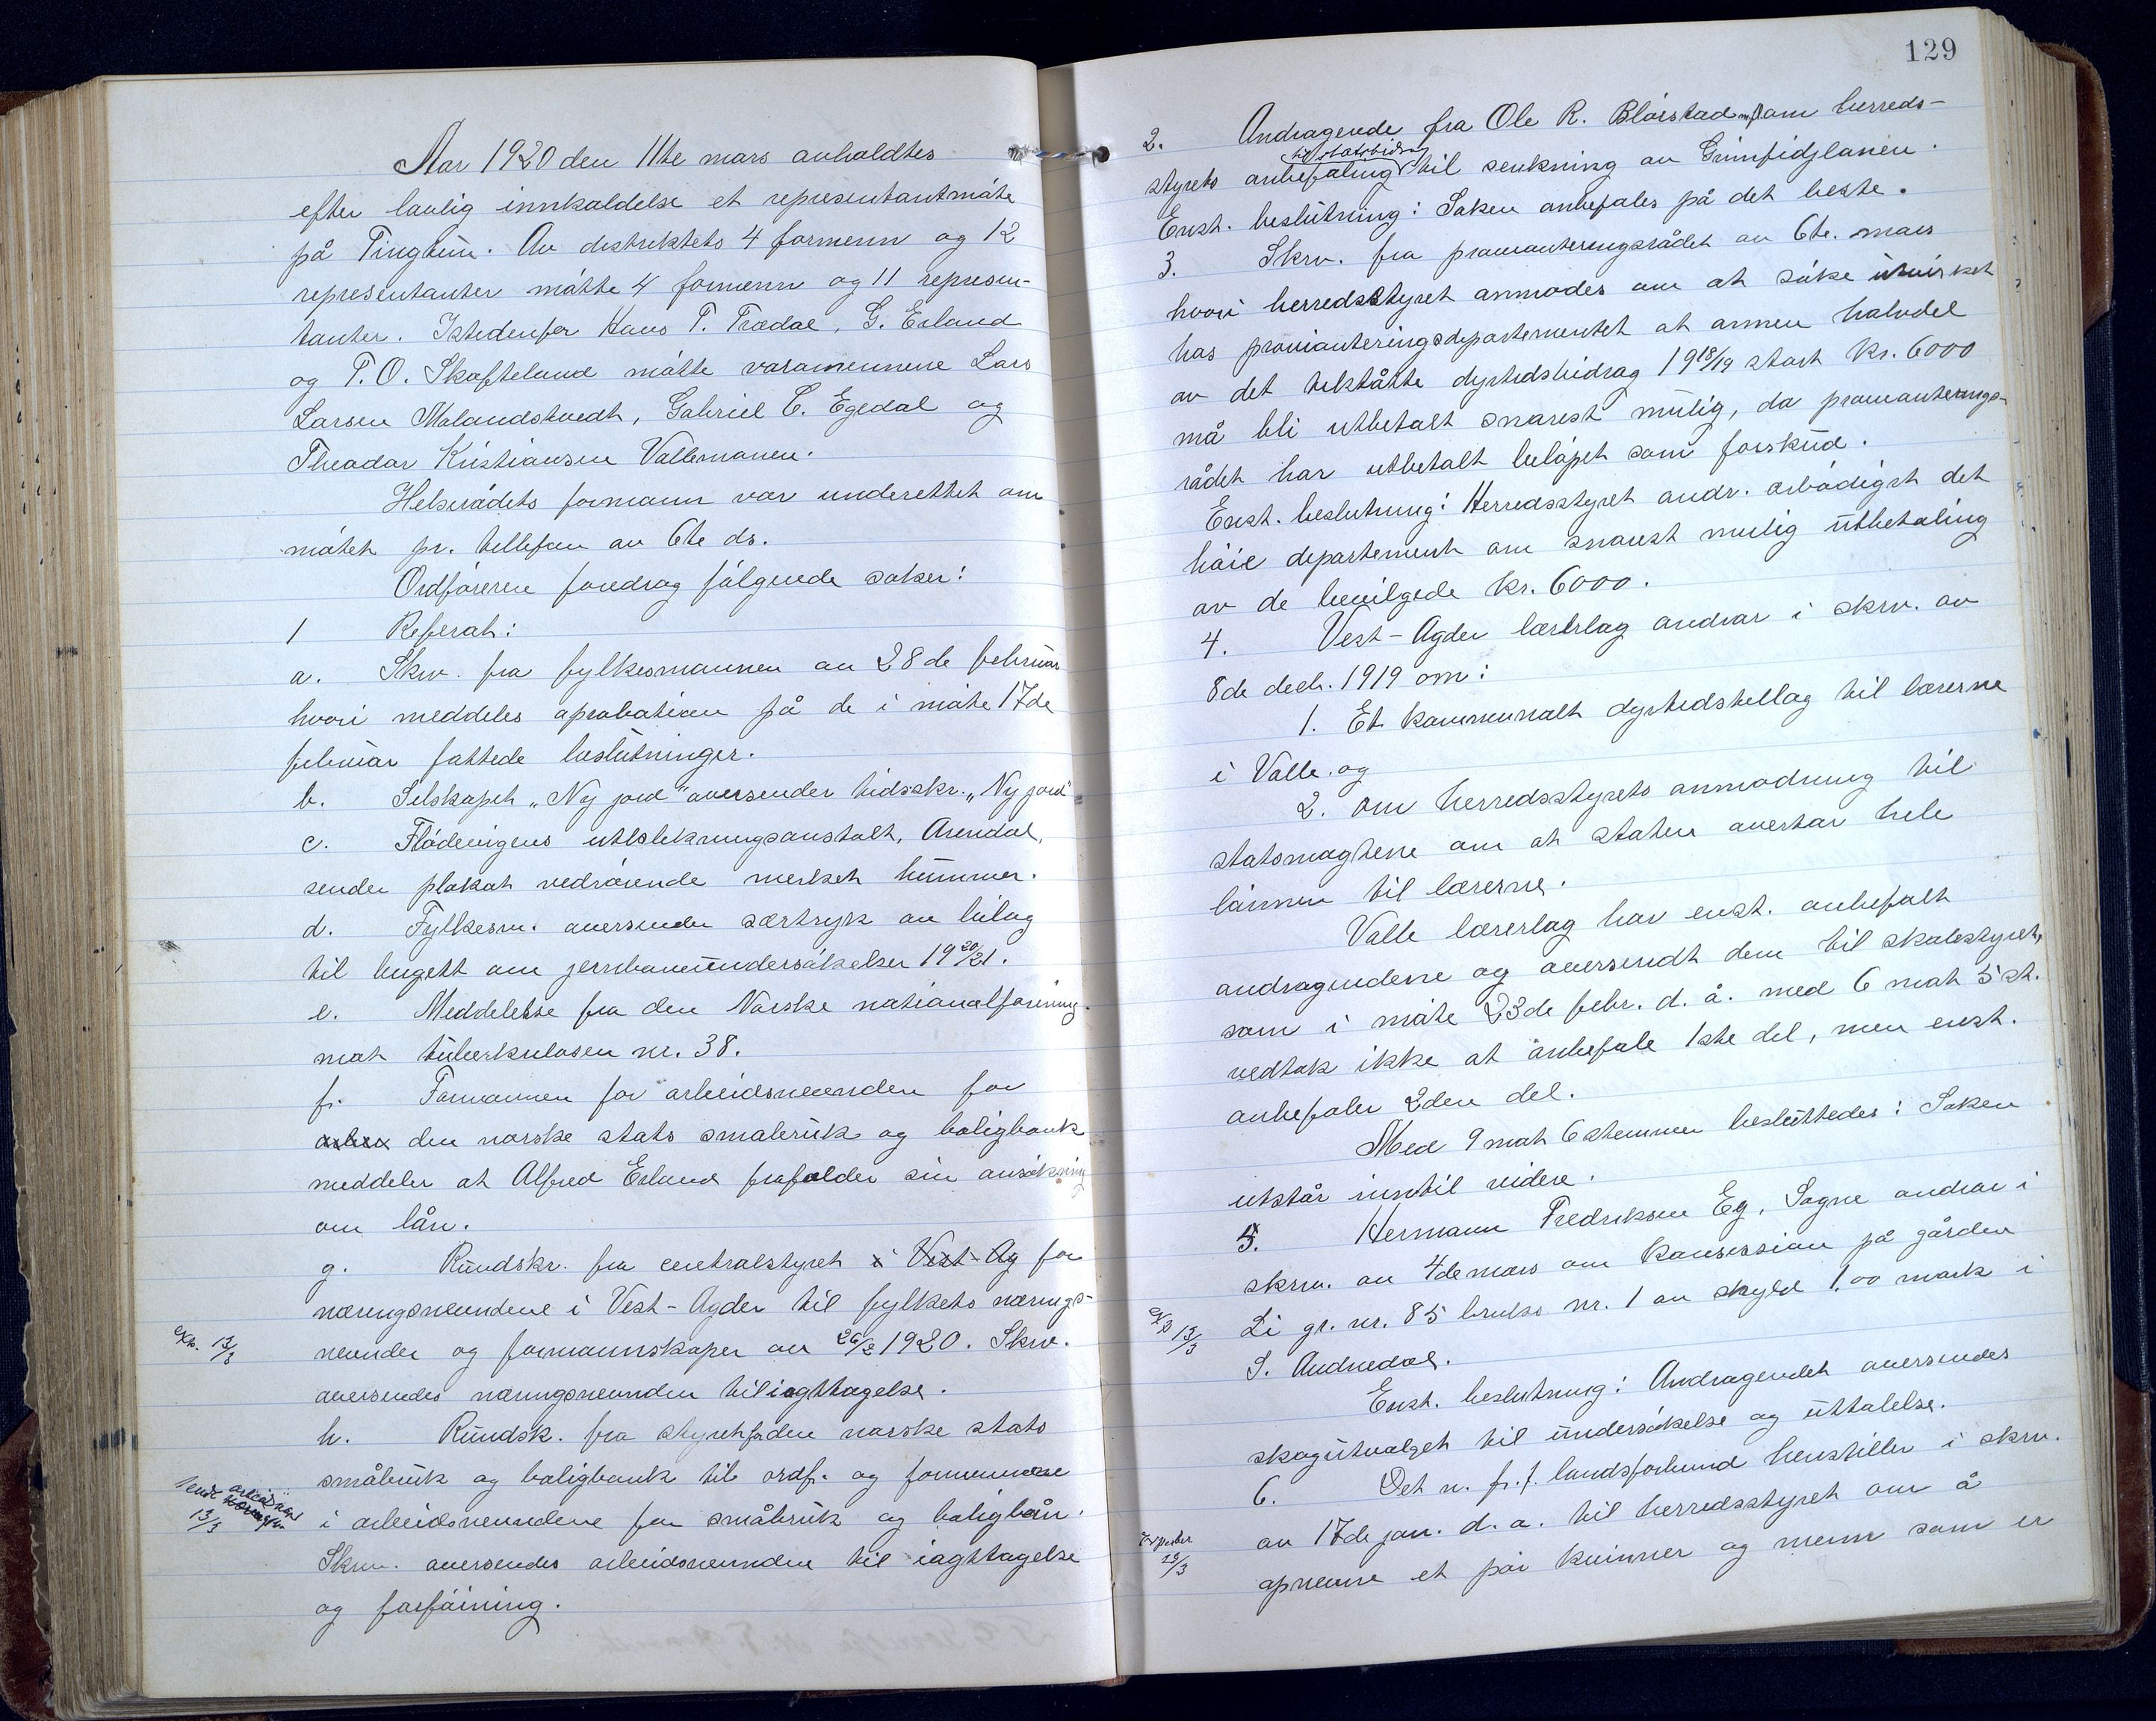 Aar 1920 den 11te mars avholdtes
efter lavlig innkaldelse et representantmøte
på Tingtun. Av distriktets 4 formenn og 12
representanter møtte 4 formenn og 11 represen-
tanter. Istedenfor Hans T. Trædal, G. Erland
og T. O. Skofteland møtte varamennene Lars
Larsen Molandstvedt, Gabriel C. Egedal og
Theodor Kristiansen Vallemonen.
Helserådets formann var underettet om
møtet pr. tellefon av 6te ds.
Ordføreren foredrog følgende saker:
1 Referat:
a. Skrv. fra fylkesmannen av 28de februar
hvori meddeles aprobation på de i møte 17de
februar fattede beslutninger.
b. Selskapet „Ny jord" oversender tidsskr. „Ny jord"
c. Flødevigens utklekningsanstalt, Arendal,
sender plakat vedrørende merket hummer.
d. Fylkesm. oversender særtryk av bilag
til bugett om jernbaneundersøkelser 1920/21.
e. Meddelelse fra den Norske nationalforening
mot tuberkulosen nr. 38.
f. Formannen for arbeidsnevnden for
den norske stats småbruk og boligbank
meddeler at Alfred Erland frafalder sin ansøkning
om lån.
g. Rundskr. fra centralstyret i Vest-Ag for
næringsnevndene i Vest-Agder til fylkets nærings-
exp. 13/3 nevnder og formannskaper av 26/2 1920. Skrv.
oversendes næringsnevnden til iagttagelse.
h. Rundsk. fra styret for den norske stats
småbruk og boligbank til ordf. og formennene
13/3 i arbeidsnevndene for småbruk og boliglån.
Skrv. oversendes arbeidsnevnden til iagttagelse
og forføining.
129
2. Andragende fra Ole R. Bløistad m.fl. om herreds-
til statsbidrag
styrets anbefaling til senkning av Grimfidjlonen.
Enst. beslutning: Saken anbefales på det beste.
3. Skrv. fra provianteringsrådet av 6te. mars
hvori herredsstyret anmodes om at søke utvirket
hos provianteringsdepartementet at annen halvdel
av det tilståtte dyrtidsbidrag 1918/19 stort kr. 6000
må bli utbetalt snarest mulig, da provianterings-
rådet har utbetalt beløpet som forskud.
Enst. beslutning: Herredsstyret andr. ærbødigst det
høie departement om snarest mulig utbetaling
av de bevilgede kr. 6000.
4. Vest-Agder lærerlag andrar i skrv. av
8de decb. 1919 om:
1. Et kommunalt dyrtidstillag til lærerne
i Valle. og
2. om herredsstyrets anmodning til
statsmagtene om at staten overtar hele
lønnen til lærerne.
Valle lærerlag har enst. anbefalt
andragendene og oversendt dem til skolestyret,
som i møte 23de febr. d. å. med 6 mot 5 st.
vedtok ikke at anbefale 1ste del, men enst.
anbefaler 2den del.
Med 9 mot 6 stemmer besluttedes: Saken
utstår inntil videre.
5. Hermann Fredriksen Eg, Søgne andrar i
skrv. av 4de mars om konsession på gården
exp 13/3 Li gr. nr. 85 bruks nr. 1 av skyld 1,00 mark i
S. Audnedal.
Enst. beslutning: Andragendet oversendes
skogutvalget til undersøkelse og uttalelse.
6. Det n. fr. f. landsforbund henstiller i skrv.
13/3 av 17de jan. d. a. til herredsstyret om å
opnevne et par kvinner og menn som er